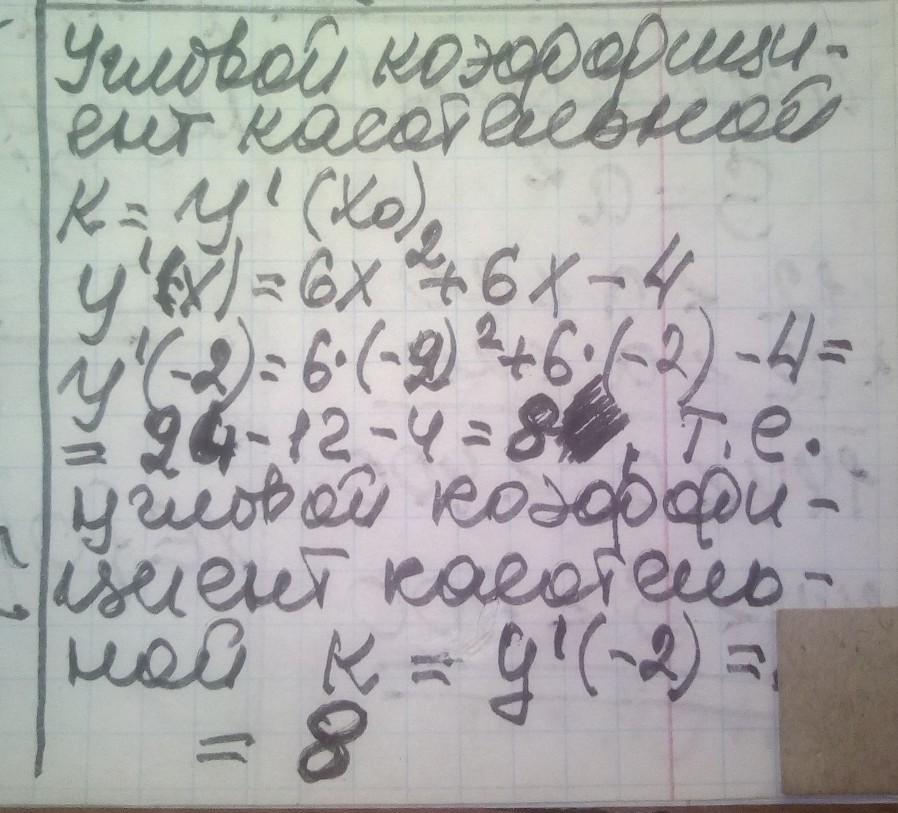 Угловой коэффици-
ент касательной
К = y' (x₀)
y'(x) = 6x² + 6x - 4
y'(-2) = 6·(-2)² + 6·(-2) - 4 =
= 24 - 12 - 4 = 8, т.е.
угловой коэффи-
циент касатель-
ной К = y'(-2) =
= 8